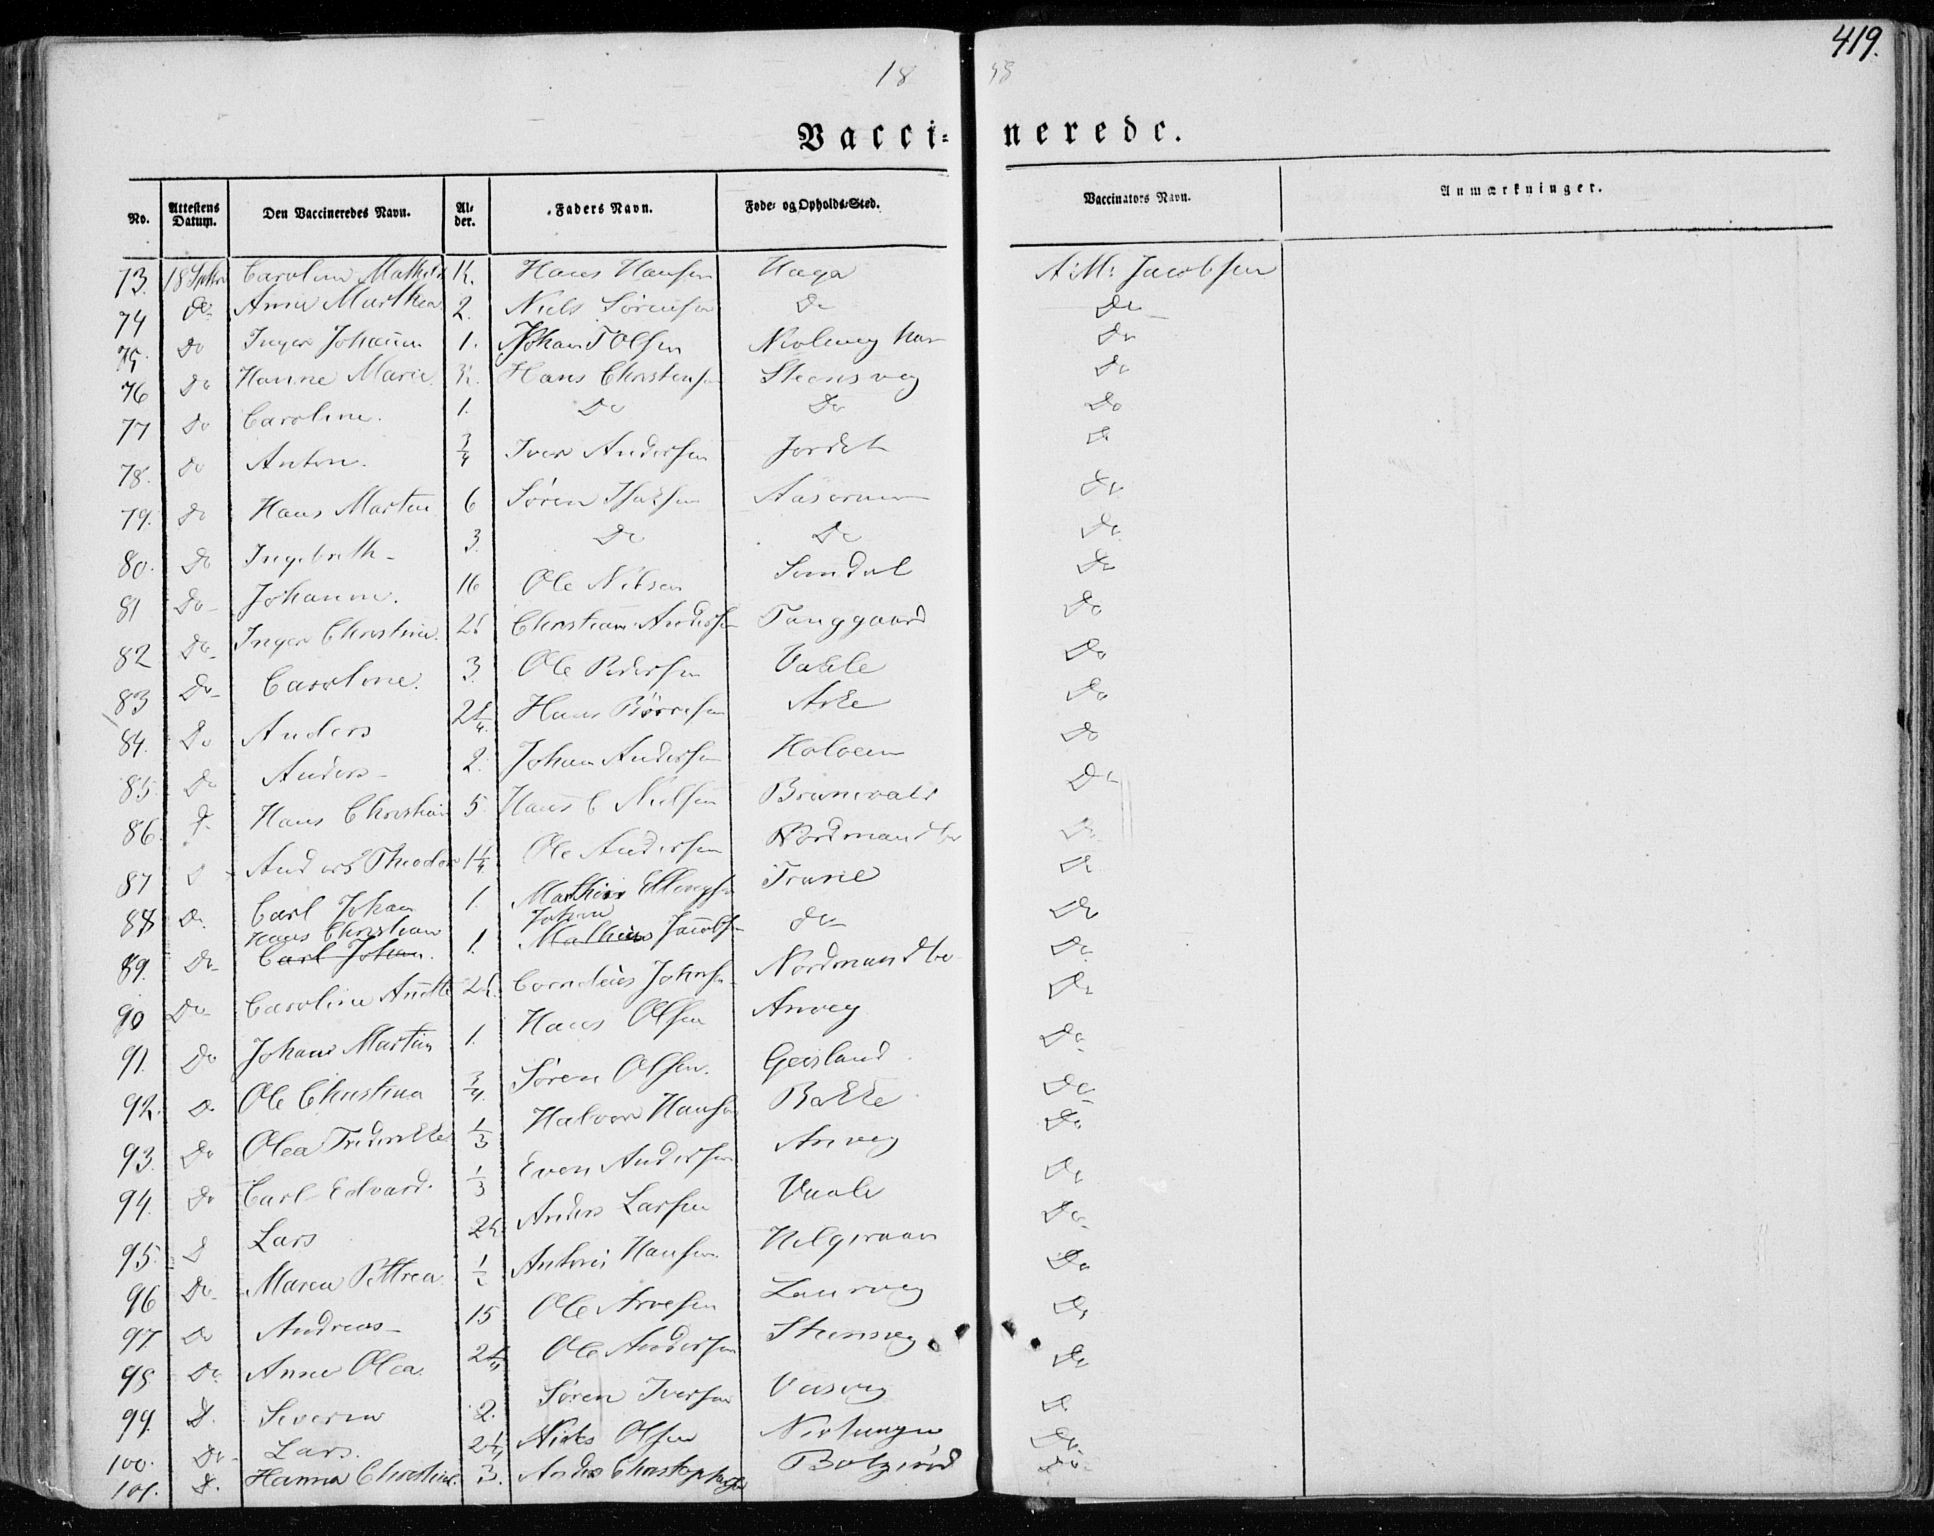 419.
18 58
Vacci- nerede.
No. Attestens Datum. Den Vaccineredes Navn. Al-der. Faders Navn. Føde- og Opholds-Sted. Vaccinators Navn. Anmærkninger.
73. 18 Septbr Caroline Mathilde Hans Hansen Haga A. M. Jacobsen
74 Do Anne Marthea 2. Niels Sørensen Do Do
75. Do Inger Johanne 1. Johan T Olsen Do
76 Do Hanne Marie Hans Christensen Steensveg Do
77 Do Caroline. 1. Do Do Do
78. Do Anton. 3/4 Iver Andersen Jordet Do
79. Do Hans Martin 6 Søren Isaksen Aaserum Do
80. Do Ingebreth 3. Do Do Do
81 Do Johanne. 16 Ole Nilsen Sundal Do
82 Do Inger Christine. Christian Andersen Tanggaard Do
83 Do Caroline. 3. Ole Pedersen Vaale Do
84. Do Anders 2 1/4 Hans Børresen Aske Do
85. Do Anders 2. Johan Andersen Do
86. Do Hans Christian 5. Hans C Nielsen Brunvald Do
87 D Anders Theodor 1 1/4 Ole Andersen Nordmandbo Do
88 Do Carl Johan 1. Mathias Ellingsen Trane Do
Hans Christian Johan
89. Do Carl Johan. 1. Mathias Jacobsen Do Do
90 Do Caroline Anette Cornelius Johnsen Nordmandbo Do
91. Do Johan Martin 1. Hans Olsen Anveg Do
92. Do Ole Christina 3/4. Søren Olsen. Geisland Do
93. Do Olea Fredrikke 1/3 Halvor Hansen Bakke Do
94. Do Carl Edvard. 1/3 Even Andersen Anveg Do
95. D Lars Anders Larsen Vaale Do
96 Do Maren Pettrea 1/2 Anton Hansen Helgeraaen Do
97 Do Andreas 15 Ole Arvesen Laurveg Do
98 Do Anne Olea 2 1/4 Ole Andersen Steensveg Do
99. D. Severin 2. Søren Iversen Veesveg D
100. Do Lars. 2 1/4 Niels Olsen Do
101. D. Hanna Christine. 3. Anders Christophersen Do